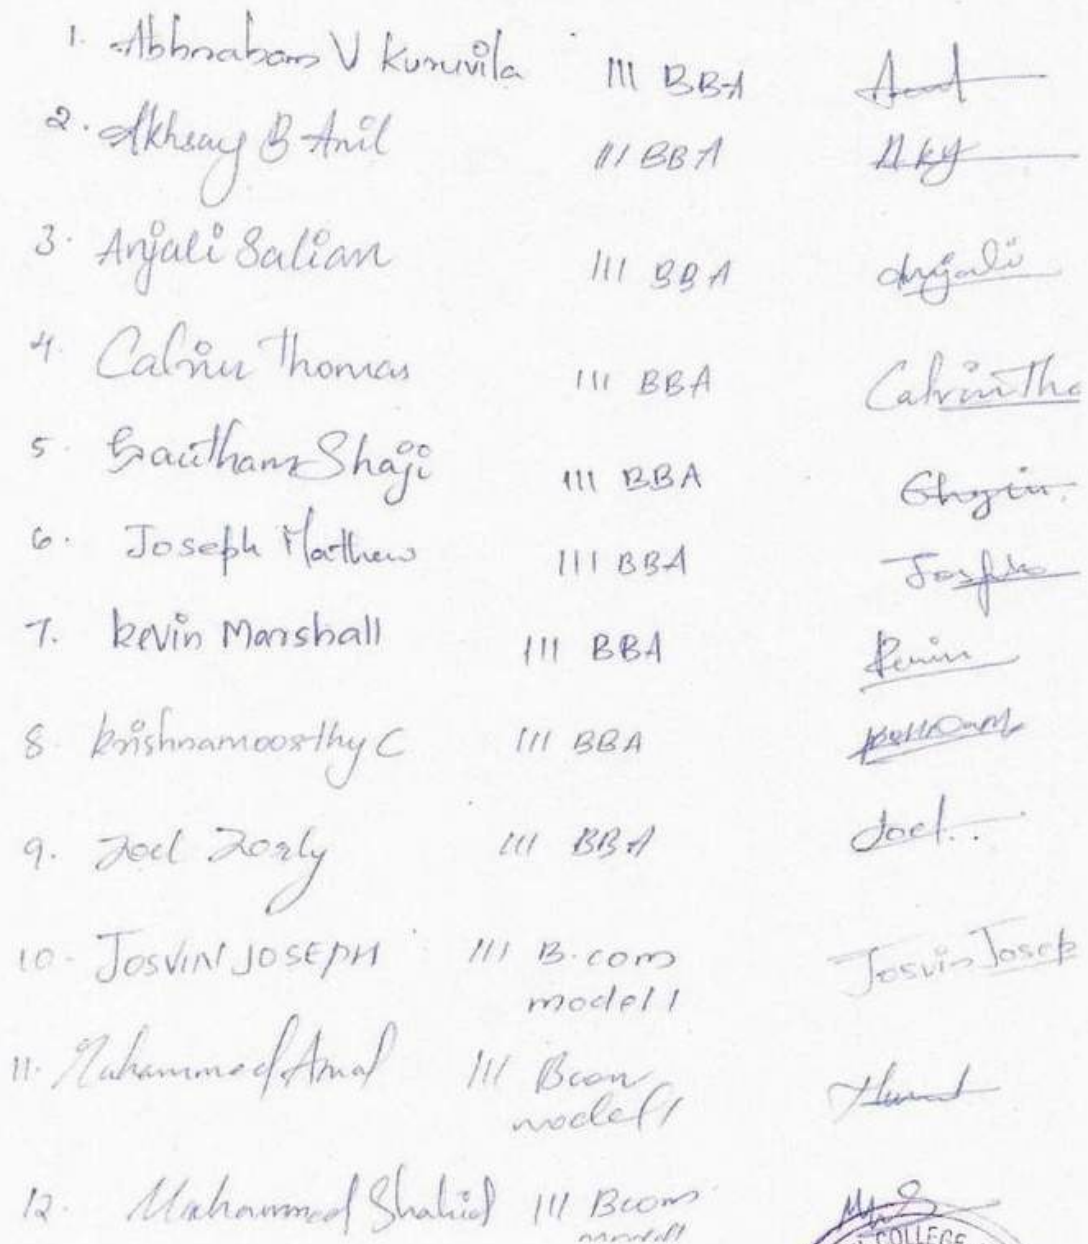 1. Abhraham V Kuruvila III BBA
2. Akhsay B Anil III BBA Aky
3. Anjali Salian III BBA Anjali
4. Calvin Thomas III BBA Calvin Tho
5. Gautham Shaji III BBA
6. Joseph Mathew III BBA Joseph
7. Kevin Marshall III BBA Kevin
8. Krishnamoorthy C III BBA
9. Joel Zorly III BBA Joel..
10. JOSVIN JOSEPH III B.com Josvin Josep
model 1
11. Muhammed Amal III Bcom
model 1
12. Muhammed Shahid III Bcom MS
model 1
COLLEGE